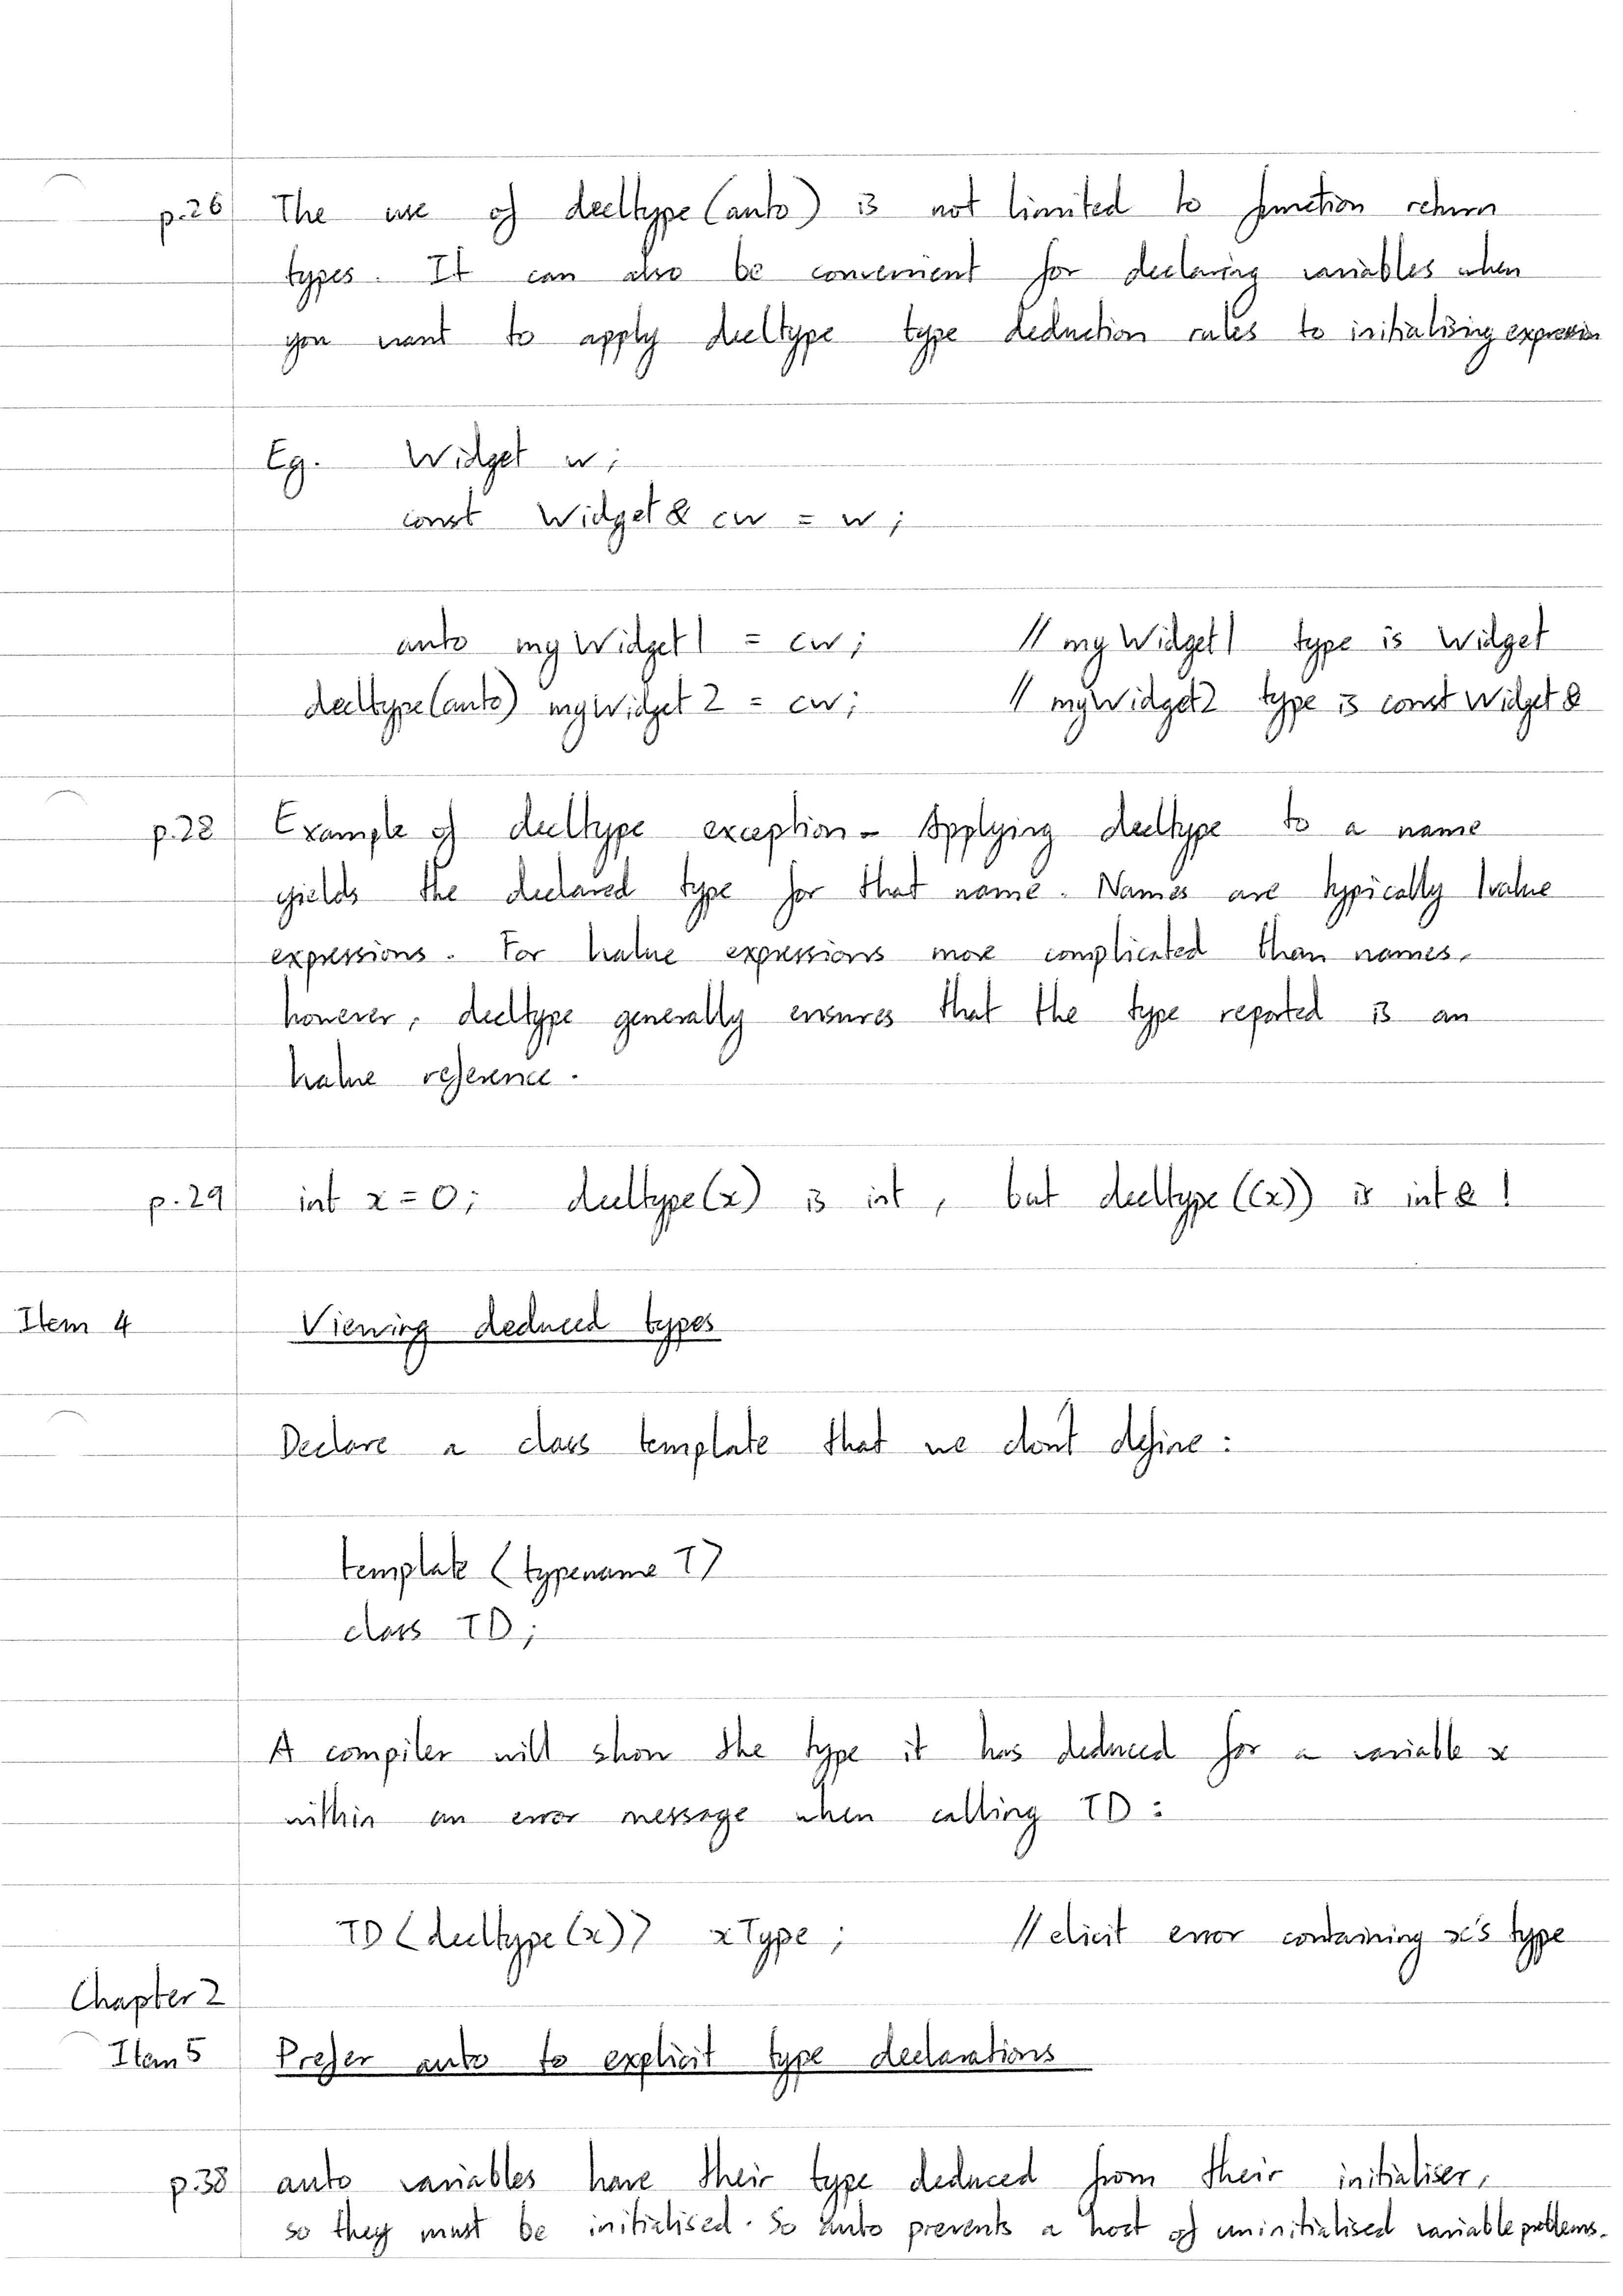 p.26 The use of decltype(auto) is not limited to function return
types. It can also be convenient for declaring variables when
you want to apply decltype type deduction rules to initialising expression
Eg. Widget w;
const Widget& cw = w;
auto myWidget1 = cw; // myWidget1 type is Widget
decltype(auto) myWidget2 = cw; // myWidget2 type is const Widget&
p.28 Example of decltype exception - Applying decltype to a name
yields the declared type for that name. Names are typically lvalue
expressions. For lvalue expressions more complicated than names,
however, decltype generally ensures that the type reported is an
lvalue reference.
p.29 int x = 0; decltype(x) is int, but decltype((x)) is int&!
Item 4 Viewing deduced types
Declare a class template that we don't define:
template <typename T>
class TD;
A compiler will show the type it has deduced for a variable x
within an error message when calling TD:
TD<decltype(x)> xType; // elicit error containing x's type
Chapter 2
Item 5 Prefer auto to explicit type declarations
p.38 auto variables have their type deduced from their initialiser,
so they must be initialised. So auto prevents a host of uninitialised variable problems.